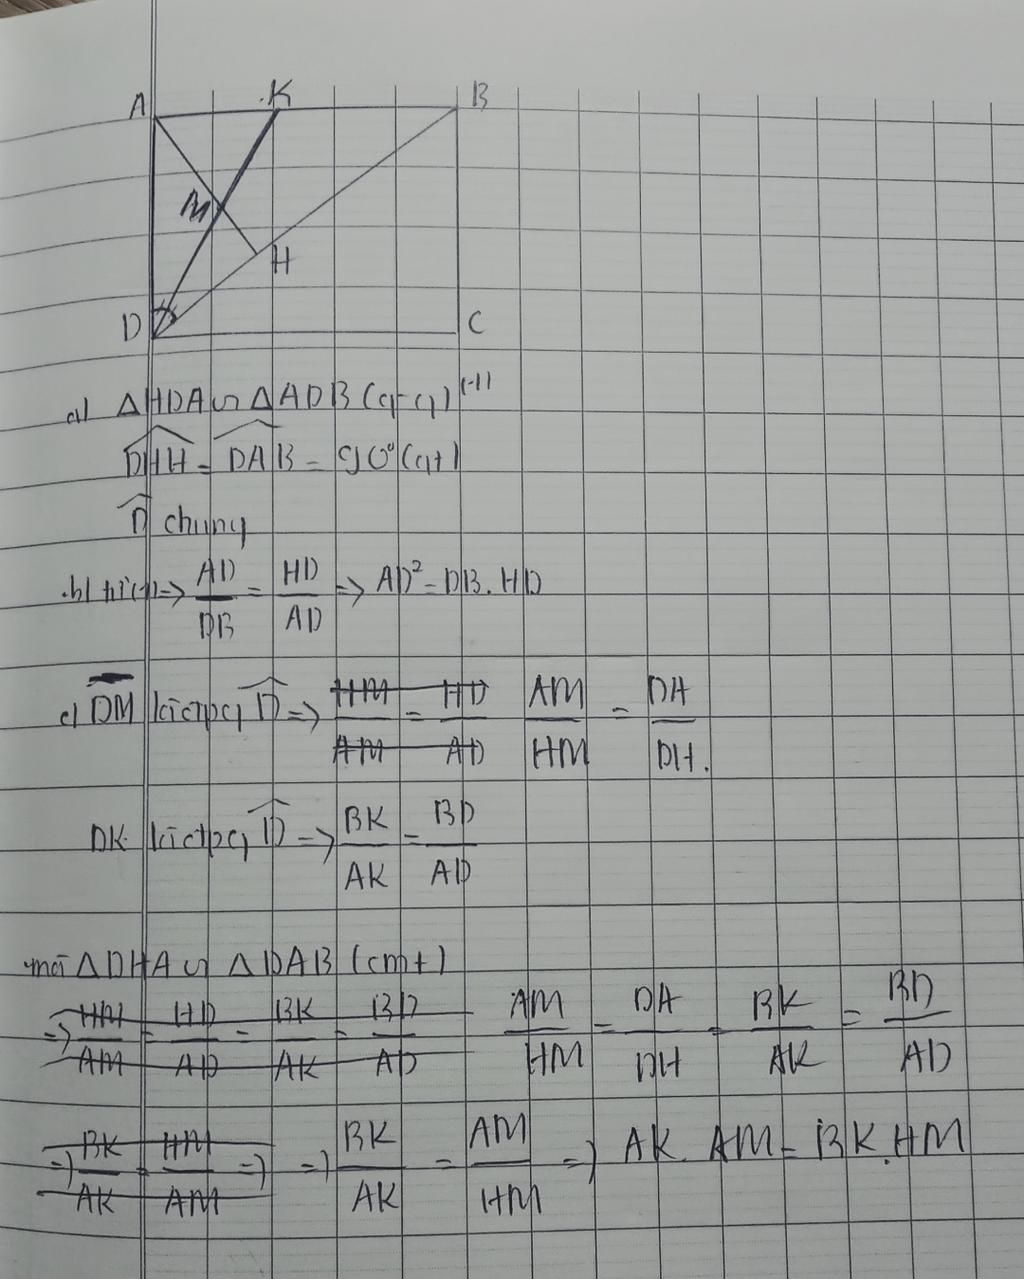 A K B
M
H
D C
a) ΔHDA ∽ ΔADB (g-g) (1)
DHA = DAB = 90° (gt)
D chung
b) từ (1) => AD/DB = HD/AD => AD² = DB.HD
c) DM là tpg D => HM/AM = HD/AD AM/HM = DA/DH.
DK là tpg D => BK/AK = BD/AD
mà ΔDHA ∽ ΔDAB (cmt)
=> HM/AM = HD/AD = BK/AK = BD/AD AM/HM = DA/DH = BK/AK = BD/AD
=> BK/AK = HM/AM => => BK/AK = AM/HM => AK.AM = BK.HM